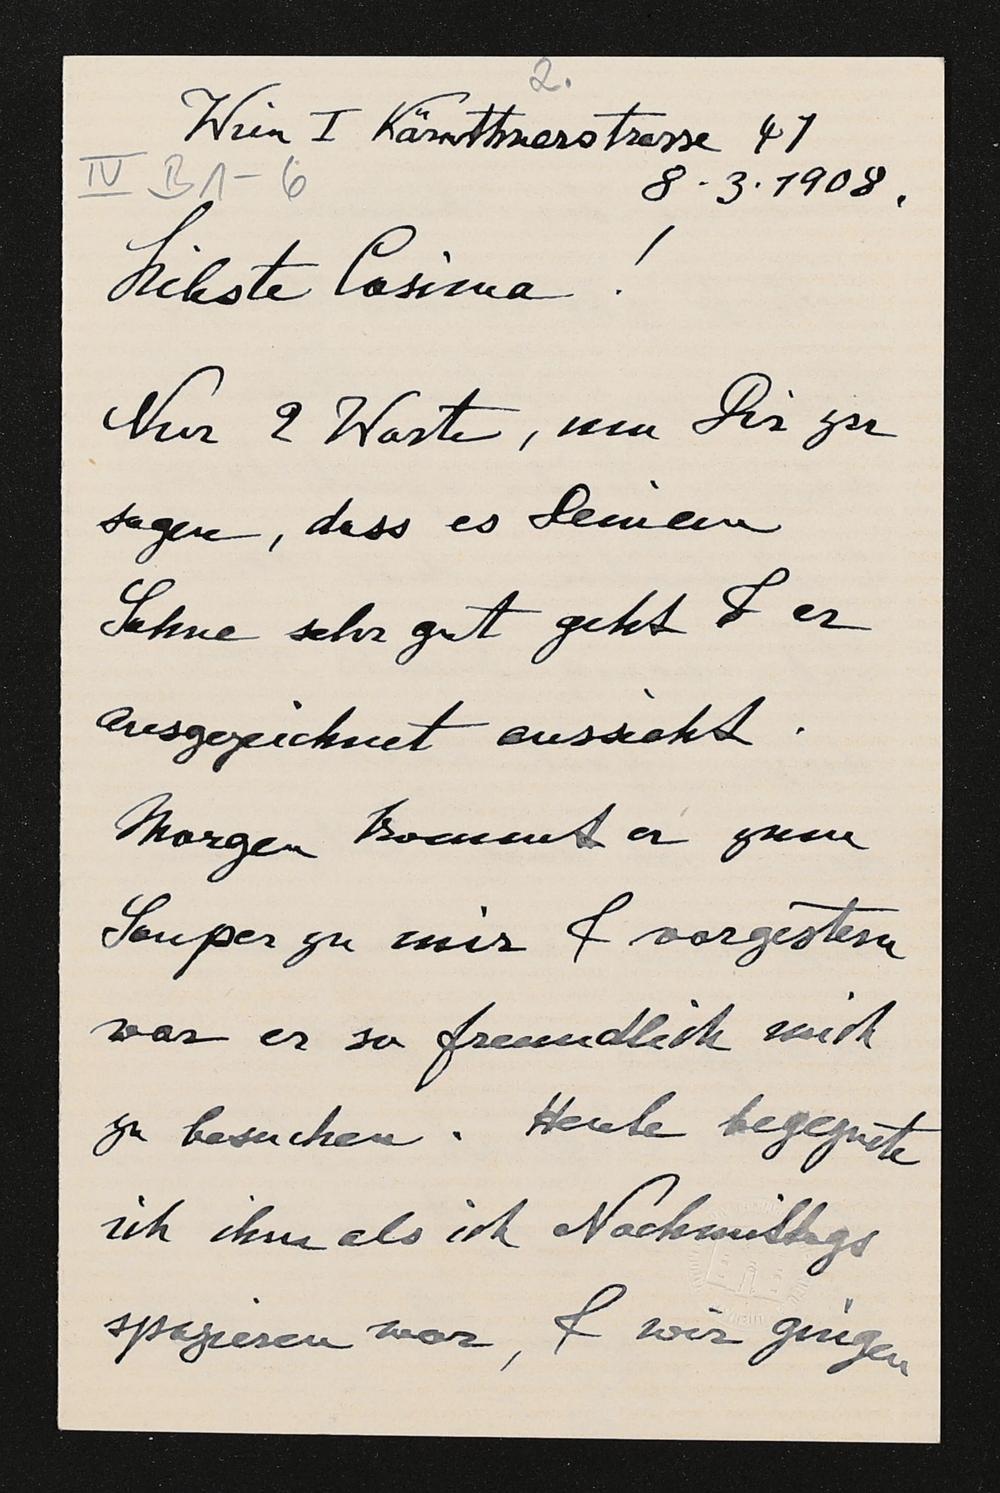 2.
Wien I Kärnthnerstrasse 41
IV B 1-6
8.3.1908.
Liebste Cosima !
Nur 2 Worte, um Dir zu
sagen, dass es Deinem
Sohne sehr gut geht & er
ausgezeichnet aussieht.
Morgen kommt er zum
Souper zu mir & vorgestern
war er so freundlich mich
zu besuchen. Heute begegnete
ich ihm als ich Nachmittags
spazieren war, & wir gingen